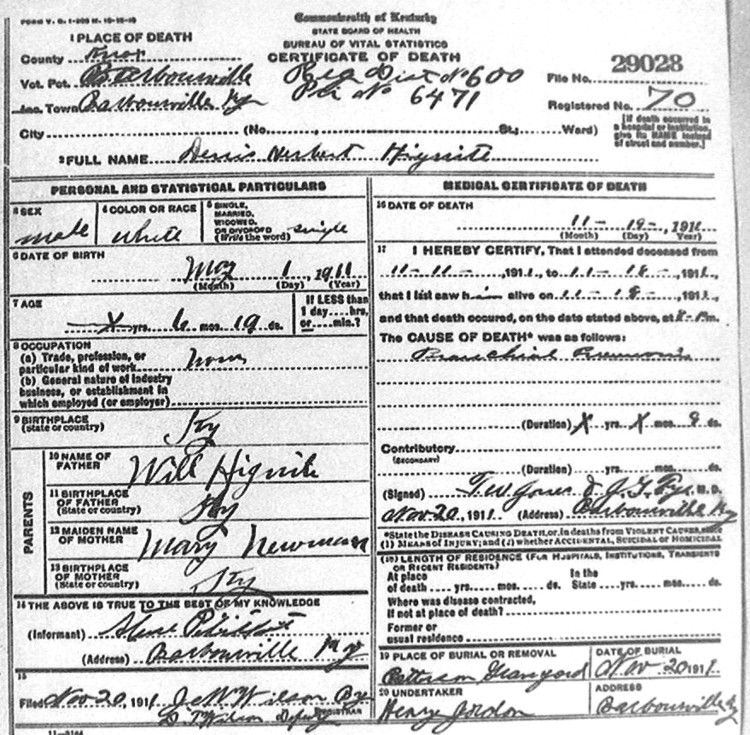 FORM V. S. 1-
Commonwealth of Kentucky
STATE BOARD OF HEALTH
BUREAU OF VITAL STATISTICS
CERTIFICATE OF DEATH
1 PLACE OF DEATH
County Knox
Vot. Pct. Barbourville
Inc. Town Barbourville Ky
Reg Dist No 600
Pri No 6471
File No. 29028
Registered No. 70
City (No. St.; Ward)
[If death occurred in a hospital or institution, give its NAME instead of street and number.]
2 FULL NAME Herbert Hignite
PERSONAL AND STATISTICAL PARTICULARS
3 SEX
male
4 COLOR OR RACE
white
5 SINGLE, MARRIED, WIDOWED, OR DIVORCED (Write the word) single
6 DATE OF BIRTH
May 1, 1911
(Month) (Day) (Year)
7 AGE
X yrs. 6 mos. 19 ds.
If LESS than 1 day....hrs. or....min.?
8 OCCUPATION
(a) Trade, profession, or particular kind of work none
(b) General nature of industry business, or establishment in which employed (or employer)
9 BIRTHPLACE
(State or country) Ky
PARENTS
10 NAME OF FATHER Will Hignite
11 BIRTHPLACE OF FATHER (State or country) Ky
12 MAIDEN NAME OF MOTHER Mary Newman
13 BIRTHPLACE OF MOTHER (State or country) Ky
14 THE ABOVE IS TRUE TO THE BEST OF MY KNOWLEDGE
(Informant)
(Address) Barbourville Ky
15
Filed Nov 20, 1911 Wilson
REGISTRAR
Wilson Deputy
MEDICAL CERTIFICATE OF DEATH
16 DATE OF DEATH
11 - 19 - 1911
(Month) (Day) (Year)
17 I HEREBY CERTIFY, That I attended deceased from
11-11-, 1911, to 11-18-, 1911,
that I last saw him alive on 11-18-, 1911,
and that death occured, on the date stated above, at m.
The CAUSE OF DEATH* was as follows:
Bronchial Pneumonia
(Duration) X yrs. X mos. ds.
Contributory
(SECONDARY)
(Duration) yrs. mos. ds.
(Signed) M.D.
Nov 20, 1911 (Address) Barbourville Ky
*State the DISEASE CAUSING DEATH, or, in deaths from VIOLENT CAUSES, state
(1) MEANS OF INJURY; and (2) whether ACCIDENTAL, SUICIDAL or HOMICIDAL
(18) LENGTH OF RESIDENCE (FOR HOSPITALS, INSTITUTIONS, TRANSIENTS OR RECENT RESIDENTS)
At place of death yrs. mos. ds. In the State yrs. mos. ds.
Where was disease contracted, if not at place of death?
Former or usual residence
19 PLACE OF BURIAL OR REMOVAL
Patterson Graveyard
DATE OF BURIAL
Nov 20 1911
20 UNDERTAKER
Henry Jordon
ADDRESS
Barbourville Ky